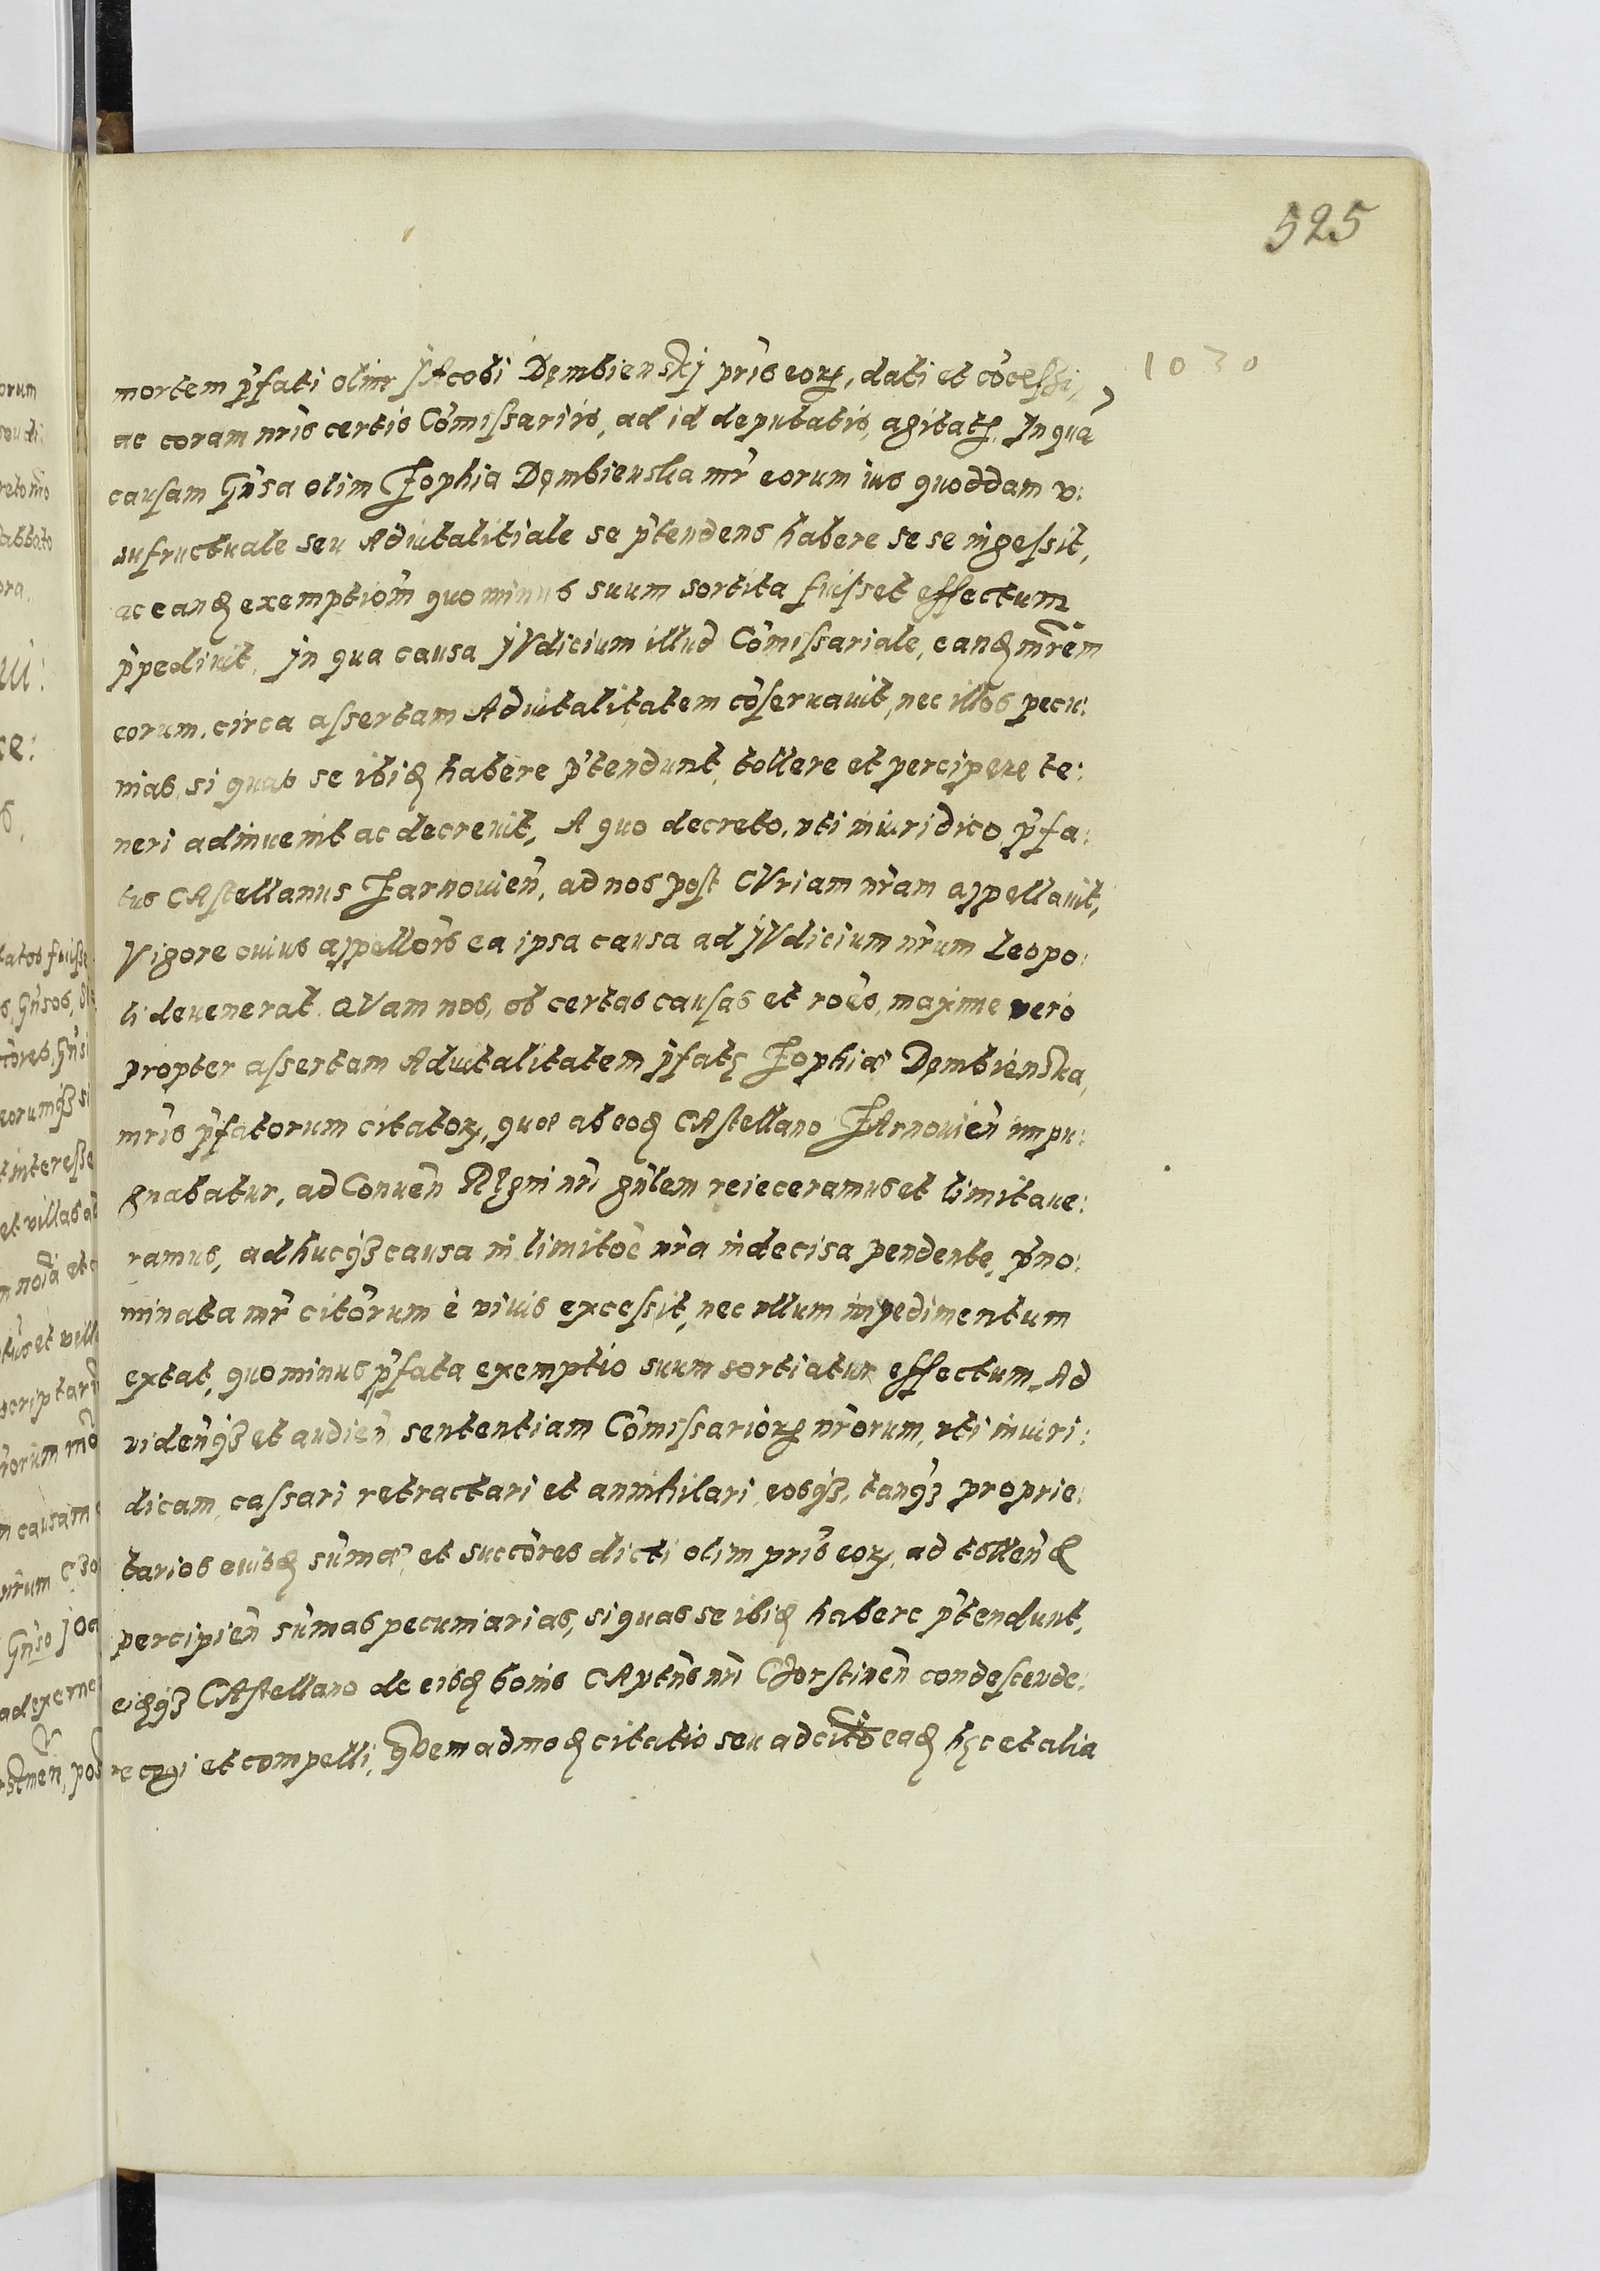 525
1030
mortem p̃fati olim JAcobi Dęmbienskj pr̃is eoꝝ, dati et cõcessi,
ac coram nr̃is certis Cõmissariis, ad id deputatis, agitatę. Jn quã
causam Gñsa olim Zophia Dęmbienska mr̃ eorum ius quoddam v:
sufructuale seu Aduitalitiale se p̃tendens habere se se ingessit,
ac eanđ exemptiom̃ quo minus suum sortita fuisset effectum
p̃pediuit. Jn qua causa JVdicium illud Cõmissariale, eanđ mr̃em
eorum, circa assertam Aduitalitatem cõseruauit, nec illos pecu:
nias, si quas se ibiđ habere p̃tendunt, tollere et percipere te:
neri adinuenit ac decreuit, A quo decreto, vti iniuridico p̃fa:
tus CAstellanus Zarnouieñ, ad nos post CVriam nr̃am appellauit,
Vigore cuius appellõis ea ipsa causa ad JVdicium nr̃um Leopo:
li deuenerat. QVam nos, ob certas causas et rões, maxime vero
propter assertam Aduitalitatem p̃fatę Zophiæ Dęmbienska,
mr̃is p̃fatorum citatoꝝ, quæ ab eođ CAstellano ZArnouieñ impu:
gnabatur, ad Conueñ REgni nr̃i gñlem reieceramus et limitaue:
ramus, adhucqꝫ causa in limitõe nr̃a indecisa pendente, p̃no:
minata mr̃ citõrum è viuis excessit, nec vllum impedimentum
extat, quo minus p̃fata exemptio suum sortiatur effectum. Ad
videñqꝫ et audieñ sententiam Cõmissarioꝝ nr̃orum, vti iniuri:
dicam, cassari retractari et annihilari, eosqꝫ, tanqꝫ proprie:
tarios eiusđ sum̃æ, et succõres dicti olim pr̃is eoꝝ, ad tolleñđ
percipieñ sum̃as pecuniarias, si quas se ibiđ habere p̃tendunt,
eiđqꝫ CAstellano de eisđ bonis CAptñs nr̃i Chorstineñ condescende:
re cogi et compelli, qVemadmođ citatio seu adcitõ eađ hęc et alia